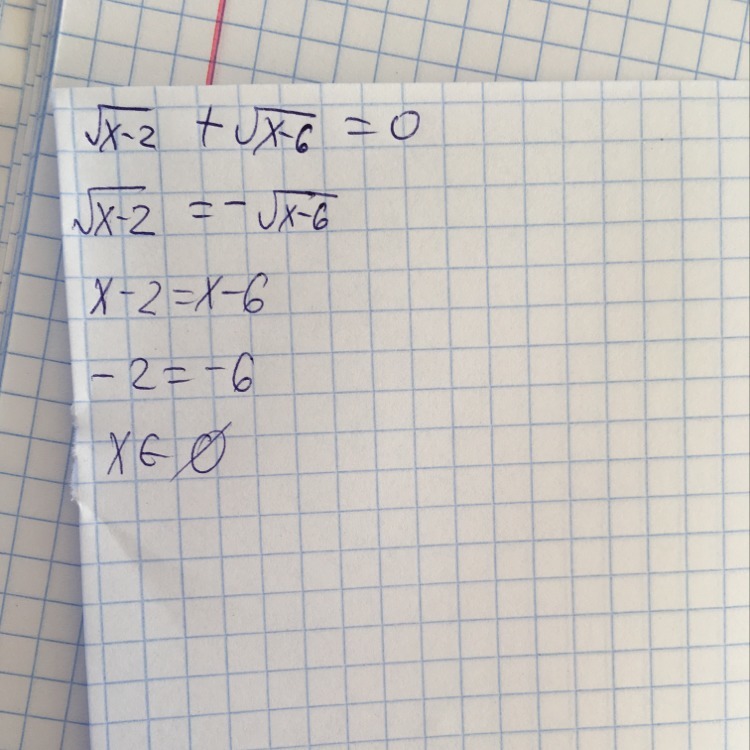 √x-2 + √x-6 = 0
√x-2 = - √x-6
x-2=x-6
-2=-6
x∈ ∅